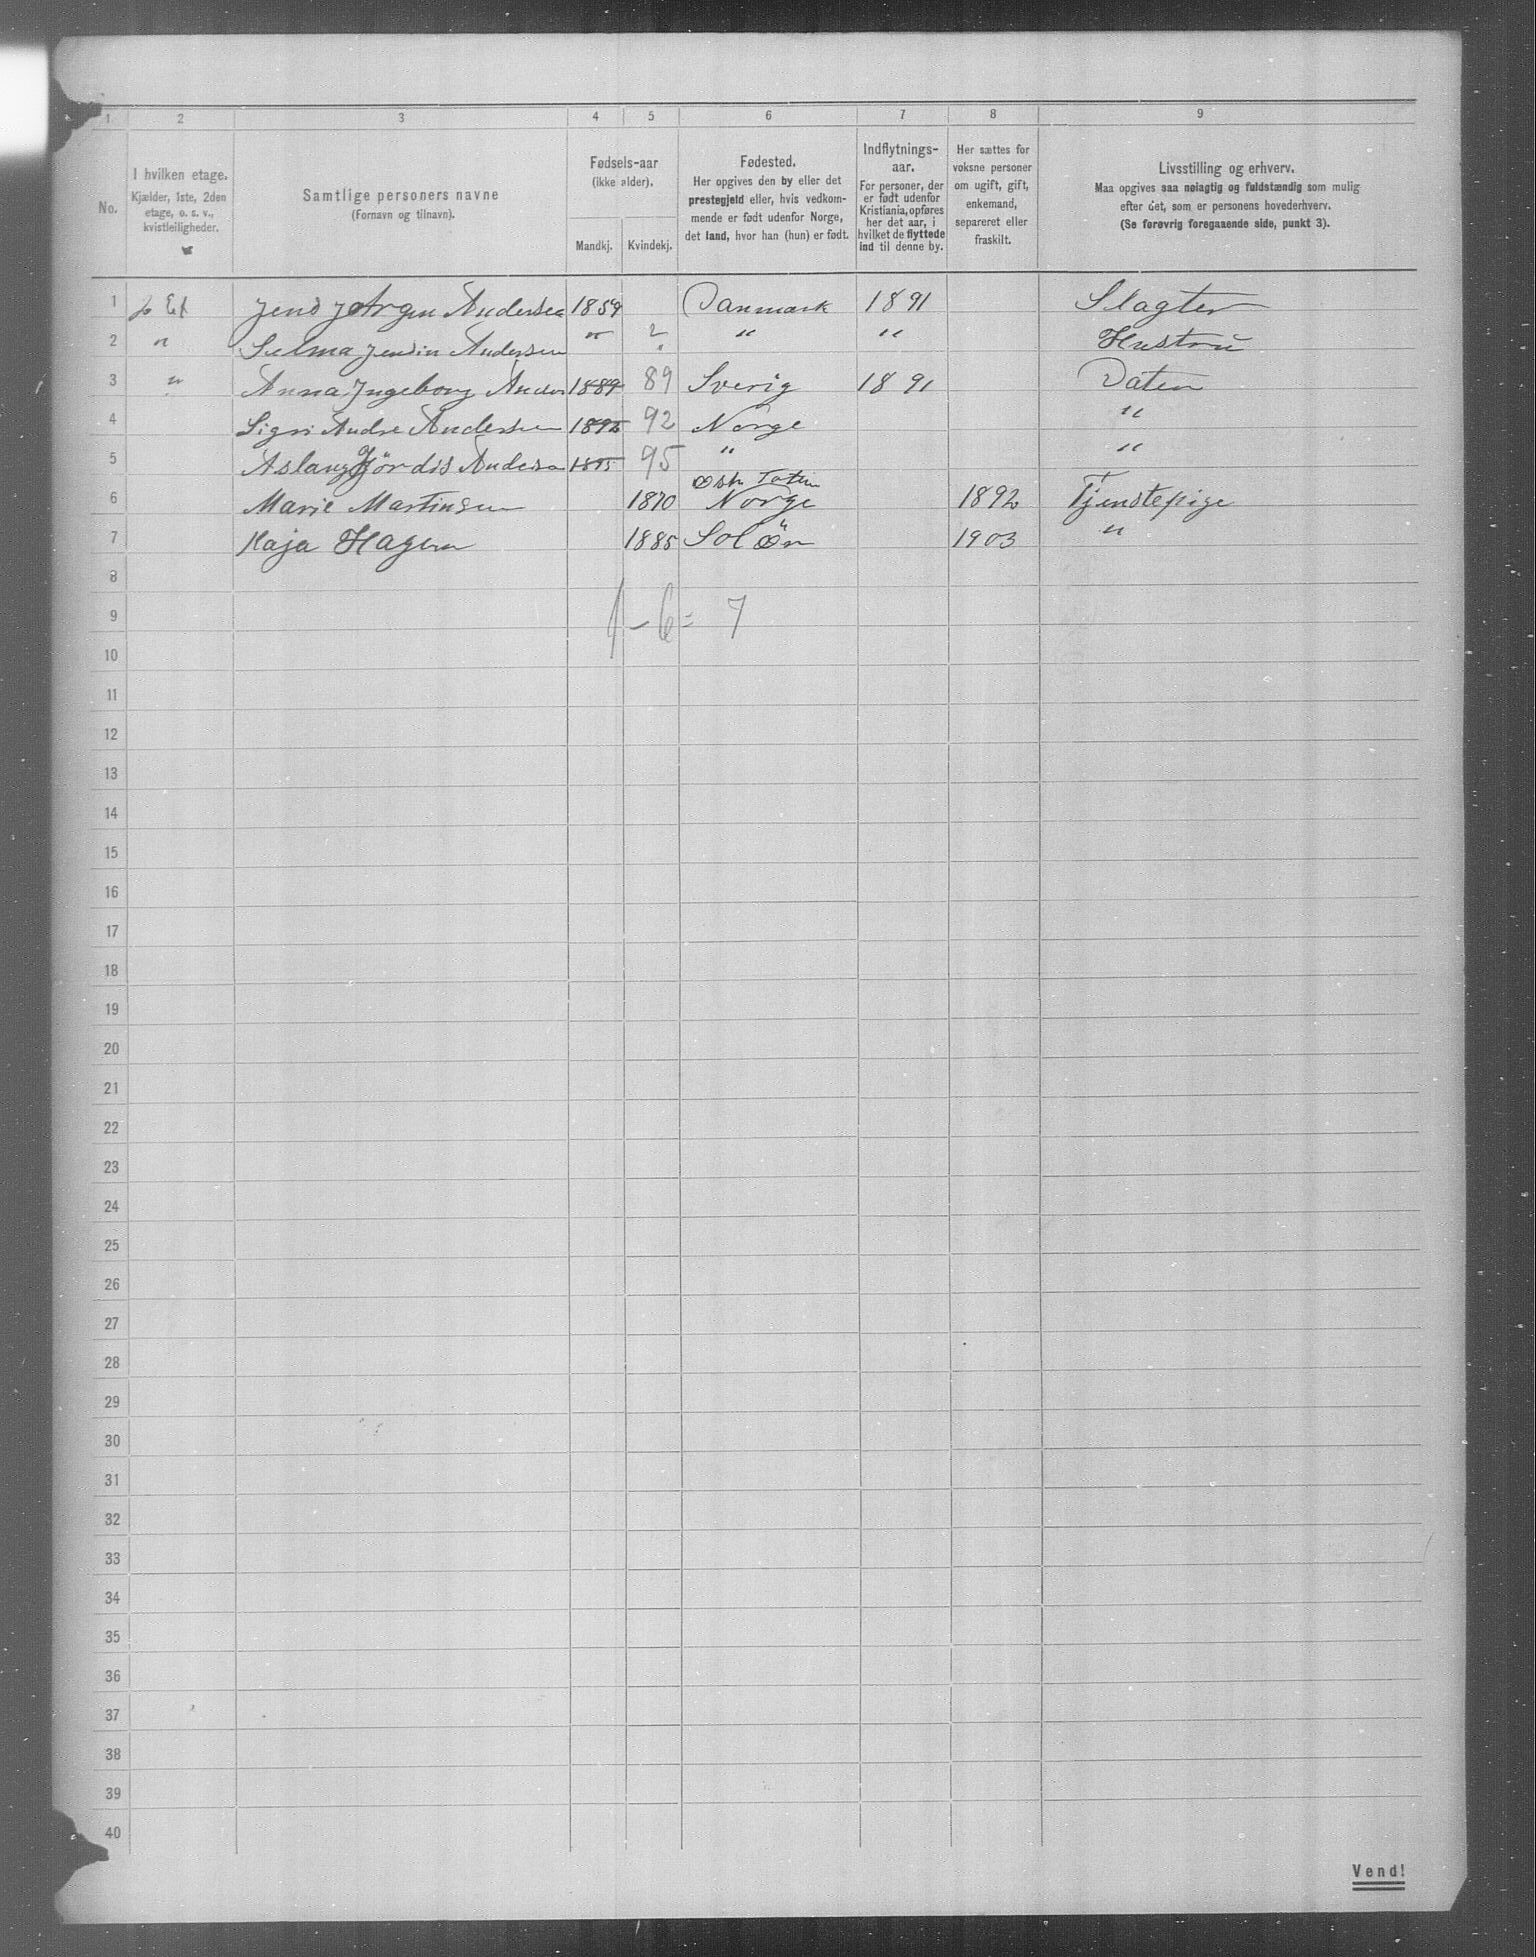 1 2 3 4 5 6 7 8 9
No.
I hvilken etage.
Kjælder, 1ste, 2den
etage, o. s. v.,
kvistleiligheder.
Samtlige personers navne
(Fornavn og tilnavn).
Fødsels-aar
(ikke alder).
Mandkj. Kvindekj.
Fødested.
Her opgives den by eller det
prestegjeld eller, hvis vedkom-
mende er født udenfor Norge,
det land, hvor han (hun) er født.
Indflytnings-
aar.
For personer, der
er født udenfor
Kristiania, opføres
her det aar, i
hvilket de flyttede
ind til denne by.
Her sættes for
voksne personer
om ugift, gift,
enkemand,
separeret eller
fraskilt.
Livsstilling og erhverv.
Maa opgives saa nøiagtig og fuldstændig som mulig
efter det, som er personens hovederhverv.
(Se forøvrig foregaaende side, punkt 3).
1 Et Jens Jørgen Andersen 1859 Danmark 1891 Slagter
2 " Selma Andersen " " " " Hustru
3 " Anna Ingeborg Ander 1889 89 Sverig 1891 Daten
4 Sigri Andre Andersen 1892 92 Norge "
5 Aslaug Hjørdis Andersen 1895 95 " "
Østr Toten
6 Marie Martinsen 1870 Norge 1892 Tjenstepige
7 Kaja Hagen 1885 Solör 1903 "
8
9 1-6 = 7
10
11
12
13
14
15
16
17
18
19
20
21
22
23
24
25
26
27
28
29
30
31
32
33
34
35
36
37
38
39
40
Vend!